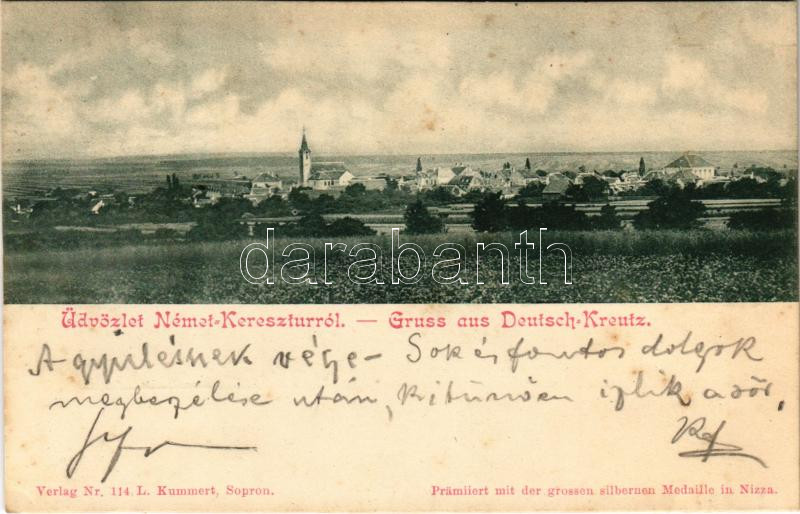 darabanth
Üdvözlet Német-Kereszturról. — Gruss aus Deutsch-Kreutz.
A gyülésnek vége – Sok és fontos dolgok
megbeszélése után, kitünően izlik a sör,
Verlag Nr. 114 L. Kummert, Sopron. Prämiiert mit der grossen silbernen Medaille in Nizza.